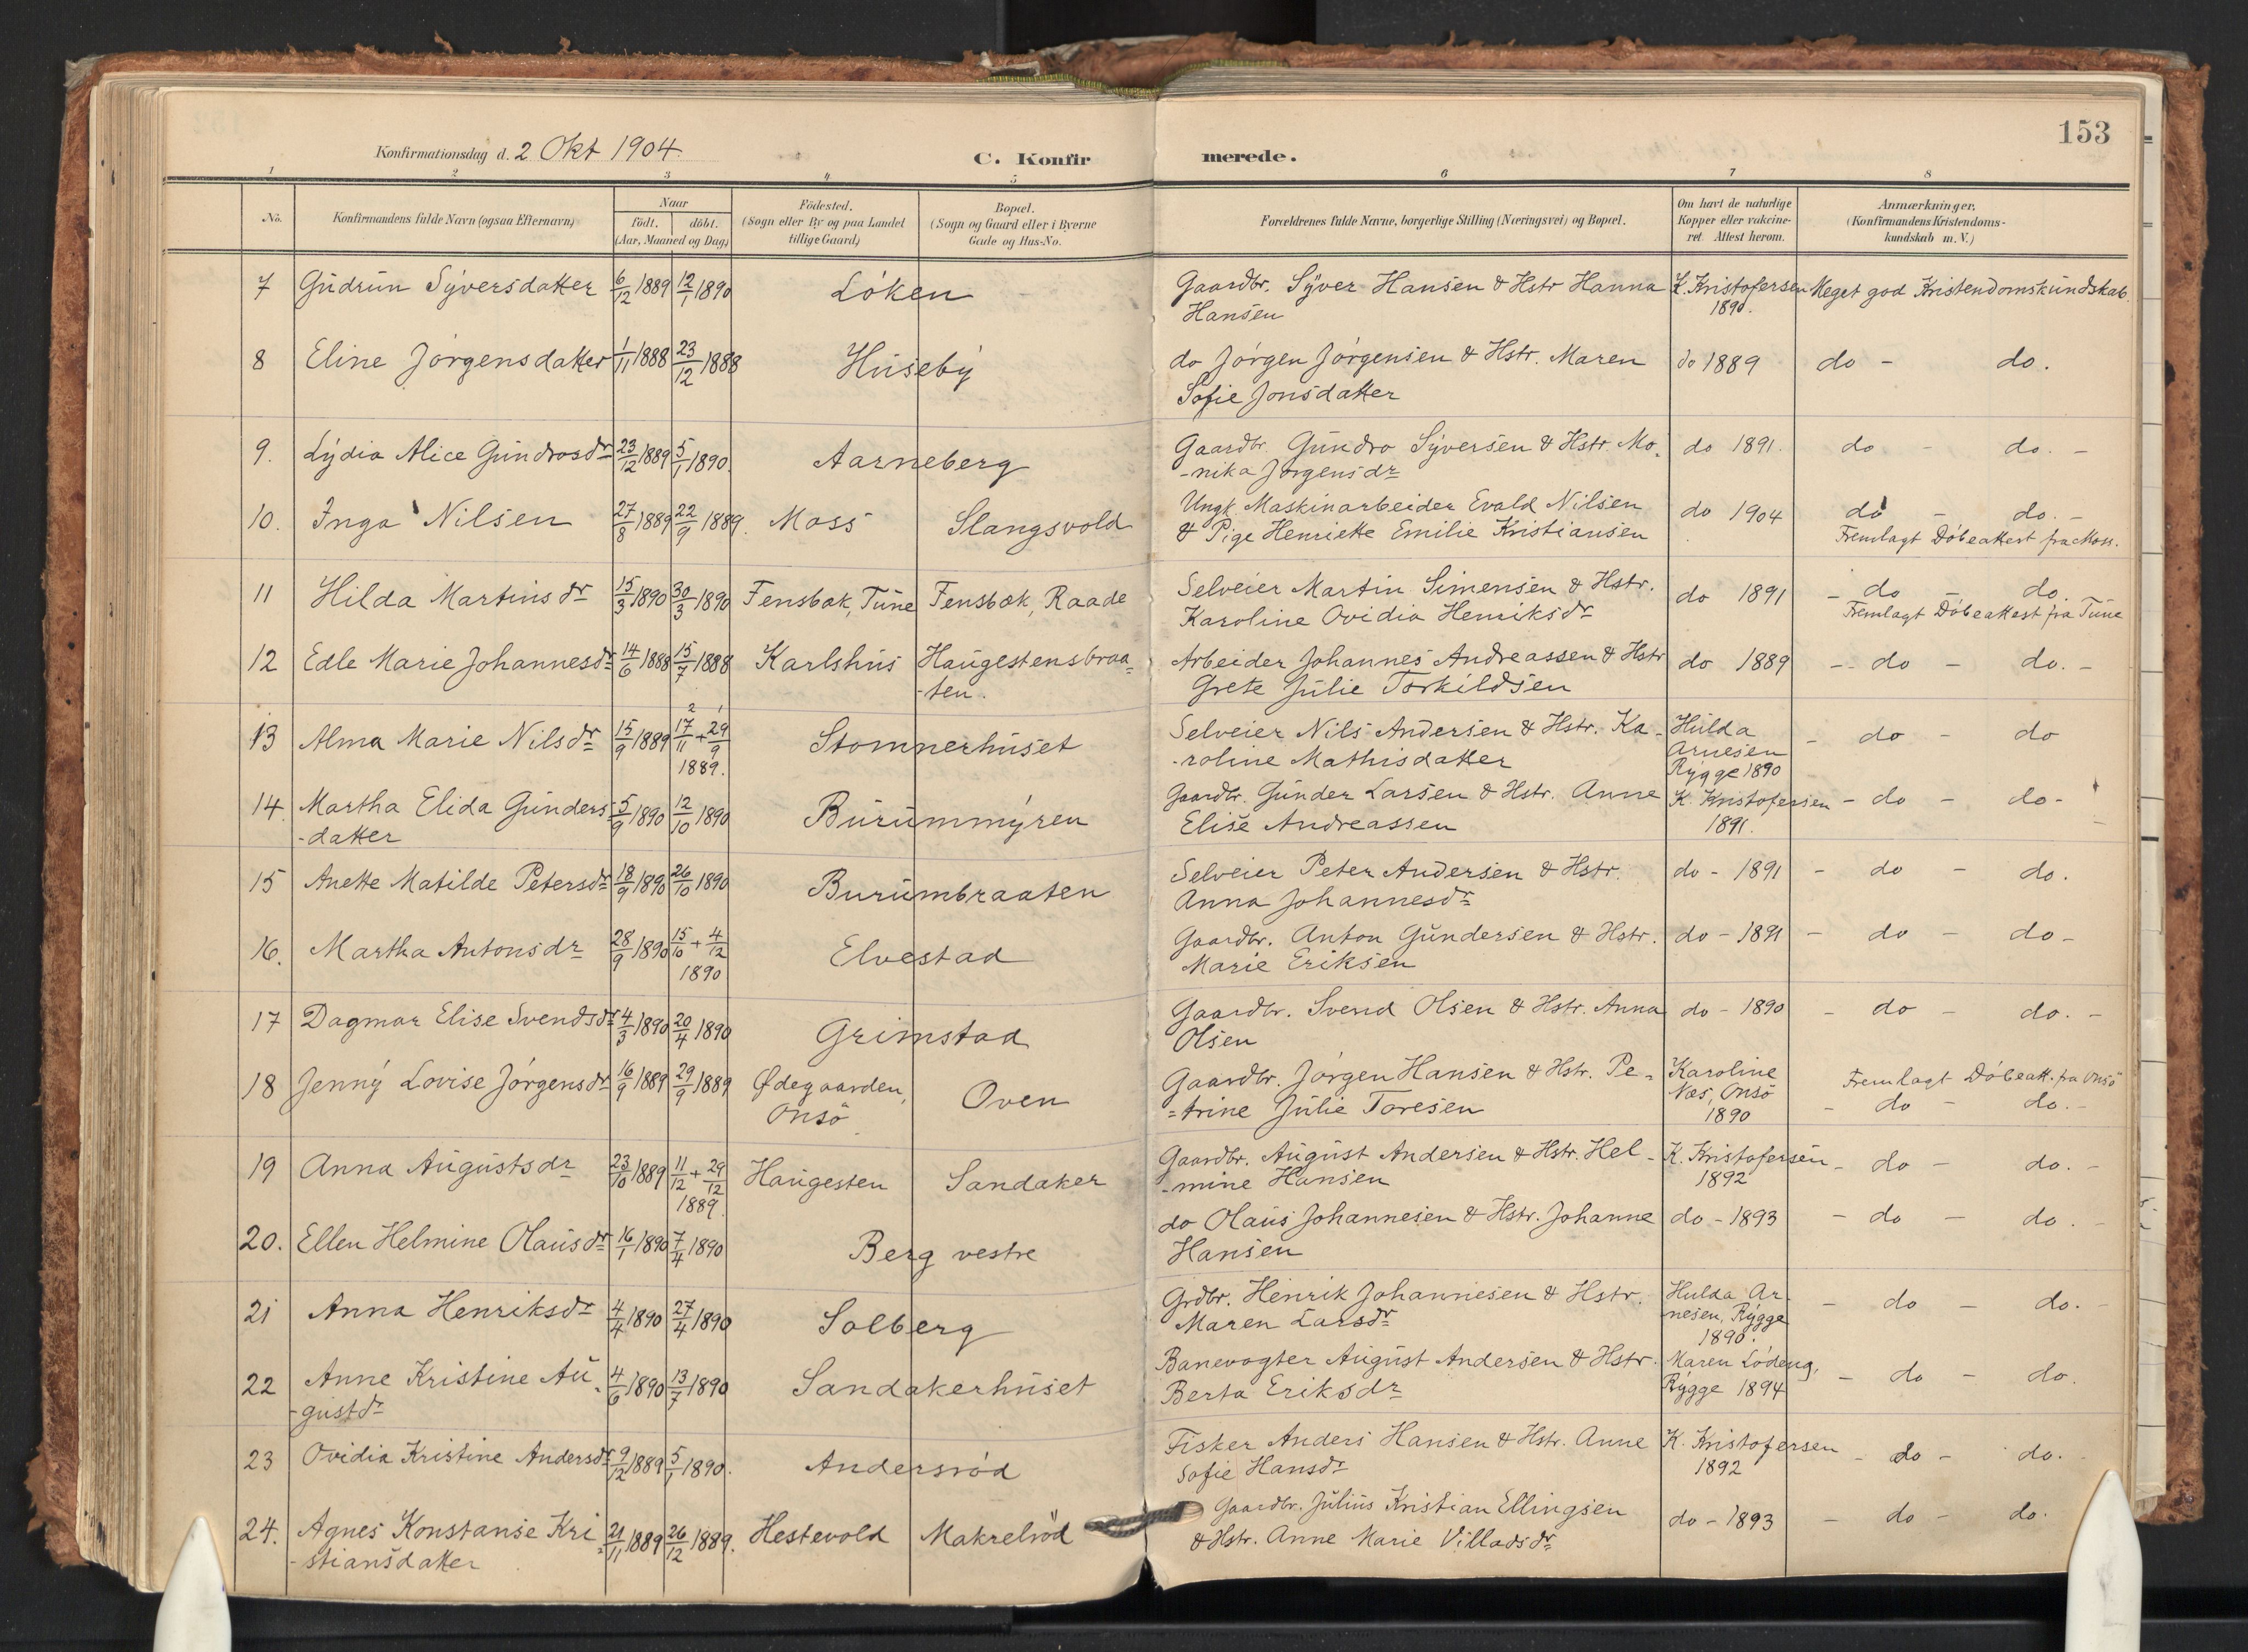 153
Konfirmationsdag d. 2 Okt 1904.
C. Konfirmerede.
1 2 3 4 5 6 7 8
No. Konfirmandens fulde Navn (ogsaa Efternavn) Naar födt. döbt. (Aar, Maaned og Dag) Födested. (Sogn eller By og paa Landet tillige Gaard) Bopæl. (Sogn og Gaard eller i Byerne Gade og Hus-No. Forældrenes fulde Navne, borgerlige Stilling (Næringsvei) og Bopæl. Om havt de naturlige Kopper eller vakcineret. Attest herom. Anmærkninger. (Konfirmandens Kristendomskundskab m. V.)
7 Gudrun Syversdatter 6/12 1889 12/1 1890 Löken Gaardbr. Syver Hansen & Hstr Hanna K. Kristofersen Meget god Kristendomskundskab.
Hansen 1890.
8 Eline Jörgensdatter 1/11 1888 23/12 1888 Huseby do Jörgen Jörgensen & Hstr. Maren do 1889 do - do.
Sofie Jonsdatter
9. Lydia Alice Gundrosdr 23/12 1889 5/1 1890. Aarneberg Gaardbr. Gundro Syversen & Hstr. Mo- do 1891. do - do. -
-nika Jörgensdr
10. Inga Nilsen 27/8 1889 22/9 1889. Moss Slangsvold Ungk. Maskinarbeider Evald Nilsen do 1904 do - do. -
& Pige Henriette Emilie Kristiansen Fremlagt Döbeattest fra Moss.
11 Hilda Martinsdr 15/3 1890 30/3 1890 Fensbak, Tune Fensbak, Raade Selveier Martin Simensen & Hstr. do 1891 - do - do.
Karoline Ovidia Henriksdr Fremlagt Döbeattest fra Tune
12 Edle Marie Johannesdr 14/6 1888 15/7 1888 Karlshus Haugestensbraa- Arbeider Johannes Andreassen & Hstr do 1889 - do - do. -
-ten. Grete Julie Torkildsen
13 Alma Marie Nilsdr 15/9 1889 2 1 17/11 + 29/9 1889. Stomnerhuset Selveier Nils Andersen & Hstr. Ka- Hulda - do - do
-roline Mathisdatter Arnesen
Rygge 1890
14. Martha Elida Gunders- 5/9 1890 12/10 1890 Burummyren Gaardbr. Gunder Larsen & Hstr. Anne K. Kristofersen - do - do -
-datter Elise Andreassen 1891.
15 Anette Matilde Petersdr 18/9 1890 26/10 1890 Burumbraaten Selveier Peter Andersen & Hstr. do - 1891 - do - do.
Anna Johannesdr
16. Martha Antonsdr 28/9 1890 15/10 + 4/12 1890 Elvestad Gaardbr. Anton Gundersen & Hstr. do - 1891 - do - do -
Marie Eriksen
17 Dagmar Elise Svendsdr 4/3 1890 20/4 1890 Grimstad Gaardbr. Svend Olsen & Hstr. Anna do - 1890 - do - do. -
Olsen
18 Jenny Lovise Jörgensdr 16/9 1889 29/9 1889 Ødegaarden, Oven Gaardbr. Jörgen Hansen & Hstr. Pe- Karoline Fremlagt Döbeatt. fra Onsö
Onsö =trine Julie Toresen Næs, Onsö - do - do. -
1890
19 Anna Augustsdr 23/10 1889 11/12 + 29/12 1889. Haugesten Sandaker Gaardbr. August Andersen & Hstr. Hel- K. Kristofersen - do - do. -
-mine Hansen 1892
20. Ellen Helmine Olausdr 16/1 1890 7/4 1890 Berg vestre do Olaus Johannesen & Hstr. Johanne do - 1893 - do - do. -
Hansen
21 Anna Henriksdr 4/4 1890 27/4 1890 Solberg Grdbr. Henrik Johannesen & Hstr. Hulda Ar- - do - do. -
Maren Larsdr nesen, Rygge
1890.
22 Anne Kristine Au- 4/6 1890 13/7 1890 Sandakerhuset Banevogter August Andersen & Hstr. Maren Lödeng, - do - do.
-gustdr Berta Eriksdr Rygge 1894
23 Ovidia Kristine Andersdr 9/12 1889 5/1 1890. Andersröd Fisker Anders Hansen & Hstr. Anne K. Kristofersen - do - do.
Sofie Hansdr 1892
24. Agnes Konstanse Kri- 21/11 1889 26/12 1889. Hestevold Makrelröd Gaardbr. Julius Kristian Ellingsen do - 1893 - do - do.
-stiansdatter & Hstr. Anne Marie Villadsdr